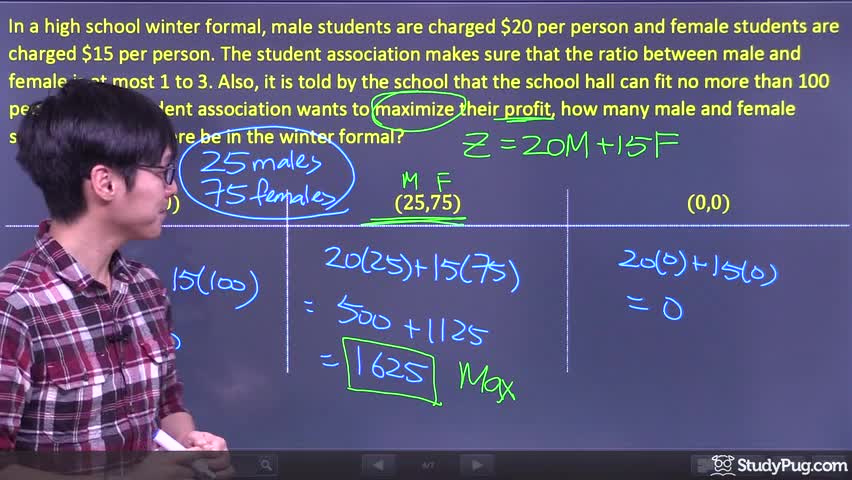 In a high school winter formal, male students are charged $20 per person and female students are
charged $15 per person. The student association makes sure that the ratio between male and
female is at most 1 to 3. Also, it is told by the school that the school hall can fit no more than 100
dent association wants to maximize their profit, how many male and female
be in the winter formal?
Z = 20M + 15F
25 males
75 females
M F
(25,75)
(0,0)
15(100)
20(25) + 15(75)
= 500 + 1125
= 1625 Max
20(0) + 15(0)
= 0
4/7
StudyPug.com